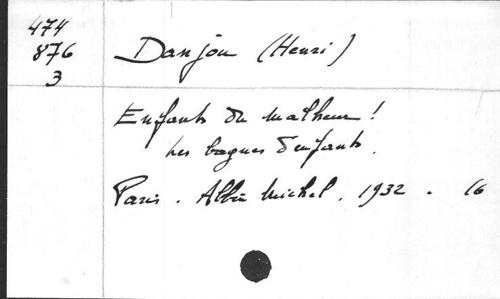 474
876
3
Danjou (Henri)
Enfants du malheur !
Les bagnes d'enfants.
Paris. Albin Michel. 1932. 16